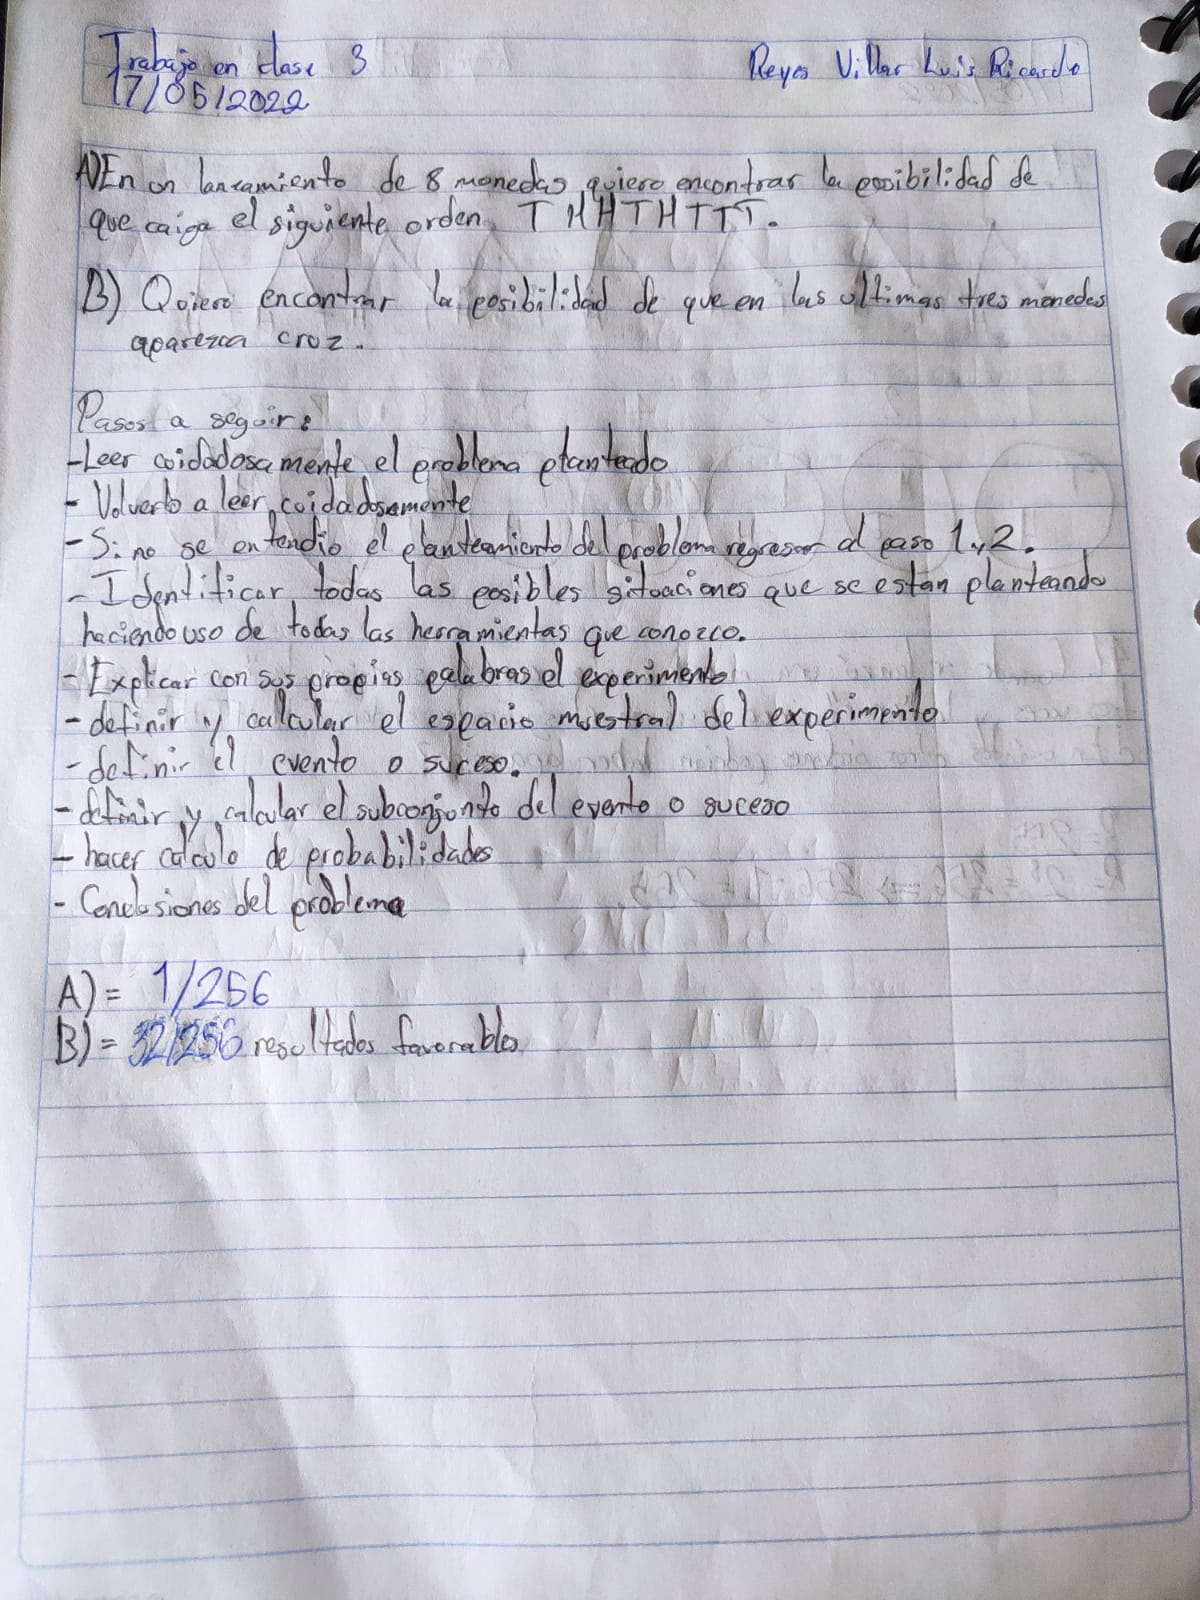 Trabajo en clase 3
Reyes Villar Luis Ricardo
17/05/2022
A) En un lanzamiento de 8 monedas quiero encontrar la posibilidad de
que caiga el siguiente orden, T H H T H T T T.
B) Quiero encontrar la posibilidad de que en las ultimas tres monedas
aparezca cruz.
Pasos a seguir:
-Leer cuidadosamente el problema planteado
- Volverlo a leer cuidadosamente
- Si no se entendio el planteamiento del problema regresar al paso 1 y 2.
- Identificar todas las posibles situaciones que se estan planteando
haciendo uso de todas las herramientas que conozco.
- Explicar con sus propias palabras el experimento
- definir y calcular el espacio muestral del experimento
- definir el evento o suceso.
- definir y calcular el subconjunto del evento o suceso
- hacer calculo de probabilidades
- Conclusiones del problema
A) = 1/256
B) = 32/256 resultados favorables